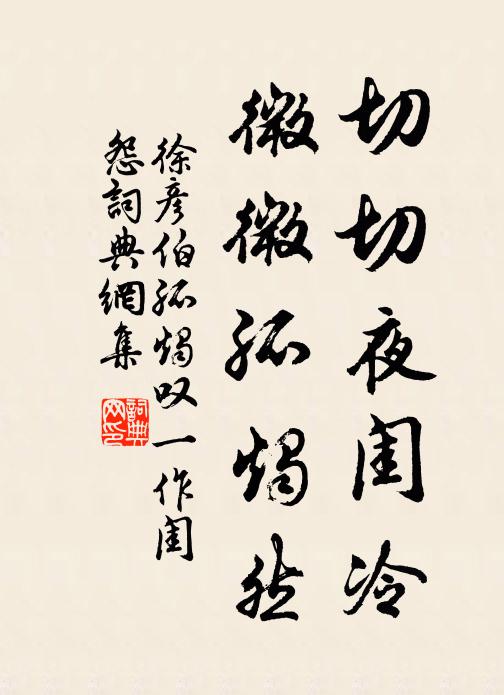 切切夜闺冷
微微孤烛然
徐彦伯孤烛叹一作闺
怨詞典網集
詞典网印